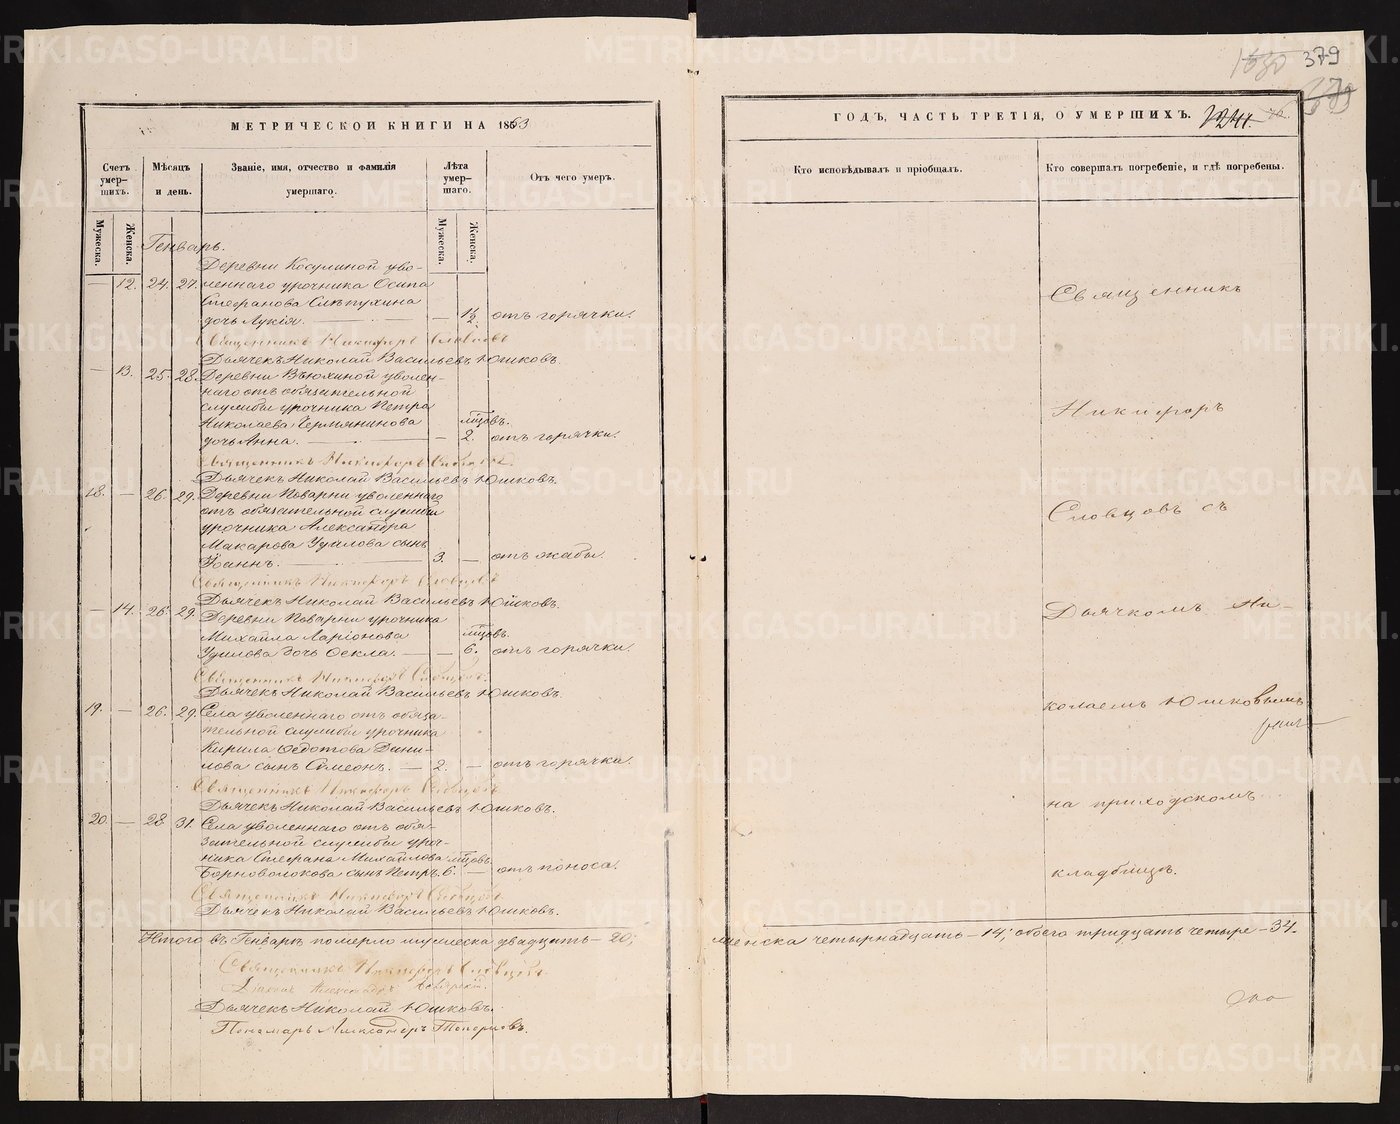 МЕТРИЧЕСКОЙ КНИГИ НА 1863
Счетъ умер-шихъ.
Мѣсяцъ и день.
Званіе, имя, отчество и фамилія умершаго.
Лѣта умер-шаго.
Отъ чего умеръ.
Мужеска.
Женска.
Мужеска.
Женска.
Генварь.
Деревни Косулиной уво-
— 12. 24. 27. леннаго урочника Осипа
Стефанова Слѣпухина
дочь Лукія. — — 1½ отъ горячки.
Священникъ Никифоръ Словцовъ
Дьячекъ Николай Васильевъ Юшковъ.
— 13. 25. 28. Деревни Вьюхиной уволен-
наго отъ обязательной
службы урочника Петра
Николаева Чермянинова мѣсцовъ.
дочь Анна. — — 2. отъ горячки.
Священникъ Никифоръ Словцовъ.
Дьячекъ Николай Васильевъ Юшковъ.
18. — 26. 29. Деревни Поварни уволеннаго
отъ обязательной службы
урочника Александра
Макарова Ушлова сынъ
Іоаннъ. — 3. — отъ жабы.
Священникъ Никифоръ Словцовъ
Дьячекъ Николай Васильевъ Юшковъ.
— 14. 26. 29. Деревни Поварни урочника
Михайла Ларіонова мѣсцовъ.
Ушлова дочь Ѳекла. — — 6. отъ горячки.
Священникъ Никифоръ Словцовъ.
Дьячекъ Николай Васильевъ Юшковъ.
19. — 26. 29. Села уволеннаго отъ обяза-
тельной службы урочника
Кирила Ѳедотова Дани-
лова сынъ Симеонъ. — 2. — отъ горячки.
Священникъ Никифоръ Словцовъ
Дьячекъ Николай Васильевъ Юшковъ.
20. — 28. 31. Села уволеннаго отъ обя-
зательной службы уроч-
ника Стефана Михайлова мѣсцовъ.
Борноволокова сынъ Петръ. 6. — отъ поноса.
Священникъ Никифоръ Словцовъ
Дьячекъ Николай Васильевъ Юшковъ.
Итого въ Генварѣ померло мужеска двадцать — 20;
Священникъ Никифоръ Словцовъ.
Діаконъ Александръ
Дьячекъ Николай Юшковъ.
Пономарь Александръ Топорковъ.
1630 379
379
ГОДЪ, ЧАСТЬ ТРЕТІЯ, О УМЕРШИХЪ.
Кто исповѣдывалъ и пріобщалъ.
Кто совершалъ погребеніе, и гдѣ погребены.
Священникъ
Никифоръ
Словцовъ съ
Дьячкомъ Ни-
колаемъ Юшковымъ
на приходскомъ
кладбищѣ.
женска четырнадцать — 14; обоего тридцать четыре — 34.
METRIKI.GASO-URAL.RU